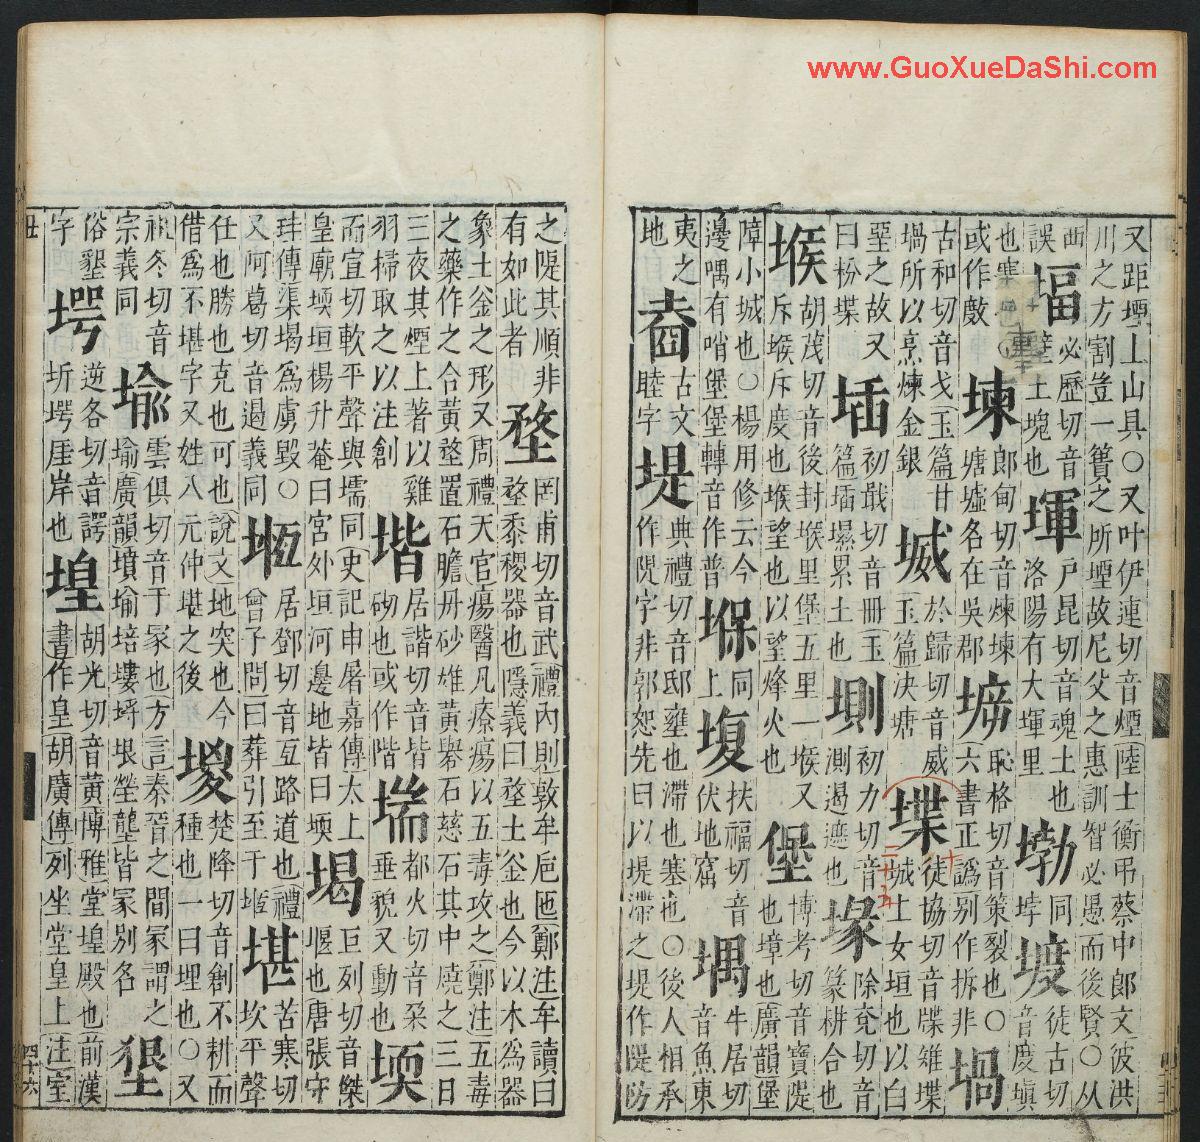 www.GuoXueDaShi.com
又距堙上山具○又叶伊連切音煙陸士衡弔蔡中郎文彼洪
川之方割豈一簣之所堙故尼父之惠訓智必愚而後賢○从
西誤堛必歷切音壁土塊也堚戸昆切音魂土也洛陽有大堚里 同 徒古切音度塡
也塞也或作 堜郎甸切音煉堜塘墟名在吳郡 恥格切音策裂也○六書正譌别作拆非堝
古和切音戈玉篇甘堝所以烹煉金銀㙎於歸切音威玉篇決塘堞徒協切音牒雉堞城上女垣也以白
堊之故又曰粉堞 初戢切音冊玉篇 累土也 初力切音測遏遮也堟除兗切音篆耕合也
堠胡茂切音後封堠里堡五里一堠又斥堠斥度也堠望也以望烽火也堡博考切音寶隄也墇也廣韻堡
障小城也○楊用修云今邊嵎有哨堡堡轉音作普堢同上㙏扶福切音伏地窟堣牛居切音魚東
夷之地 古文睦字堤典禮切音邸壅也滯也塞也○後人相承作隄字非郭恕先曰以堤滯之堤作隄防
之隄其順非有如此者堥罔甫切音武禮內則敦牟巵匜鄭注牟讀曰堥黍稷器也隱義曰堥土釜也今以木爲器
象土釜之形又周禮天官瘍醫凡療瘍以五毒攻之鄭注五毒
之藥作之合黃堥置石膽丹砂雄黃礜石慈石其中燒之三日
三夜其煙上著以雞羽掃取之以注創堦居諧切音皆砌也或作階㙐都火切音朵垂貌又動也堧
而宣切軟平聲與壖同史記申屠嘉傳太上皇廟堧垣楊升菴曰宮外垣河邊地皆曰堧堨巨列切音傑堰也唐張守
珪傳渠堨爲虜毁○又阿葛切音遏義同堩居鄧切音亙路道也禮曾子問曰葬引至于堩堪苦寒切坎平聲
任也勝也克也可也說文地突也今借爲不堪字又姓八元仲堪之後堫楚降切音創不耕而種也一曰埋也○又
祖冬切音宗義同堬雲俱切音于冢也方言秦晉之間冢謂之堬廣韻墳堬培塿埒垠塋壟皆冢别名
俗墾字堮逆各切音諤圻堮厓岸也堭胡光切音黃博雅堂堭殿也前漢書作皇胡廣傳列坐堂皇上注室
丑
四十六